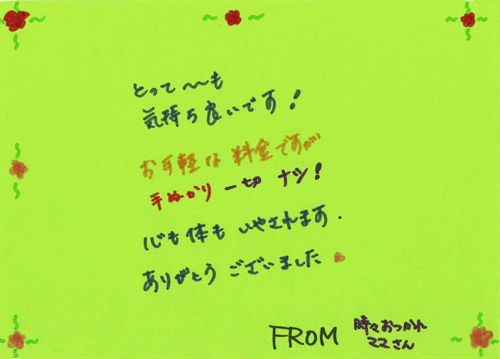 とって〜も
気持ち良いです!
お手軽な料金ですが
手ぬかり一切ナシ!
心も体もいやされます.
ありがとうございました
FROM 時々おつかれ
ママさん